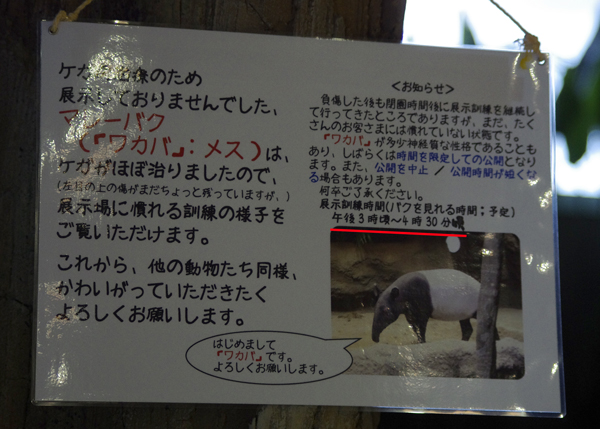 ケガの治療のため
展示しておりませんでした、
マレーバク
(『ワカバ』:メス)は、
ケガがほぼ治りましたので、
(左目の上の傷がまだちょっと残っていますが、)
展示場に慣れる訓練の様子を
ご覧いただけます。
これから、他の動物たち同様、
かわいがっていただきたく
よろしくお願いします。
<お知らせ>
負傷した後も閉園時間後に展示訓練を継続し
て行ってきたところでありますが、まだ、たく
さんのお客さまには慣れていない状態です。
『ワカバ』が多少神経質な性格であることも
あり、しばらくは時間を限定しての公開となり
ます。また、公開を中止 / 公開時間が短くな
る場合もあります。
何卒ご了承ください。
展示訓練時間(バクを見れる時間;予定)
午後3時頃~4時30分頃
はじめまして
『ワカバ』です。
よろしくお願いします。